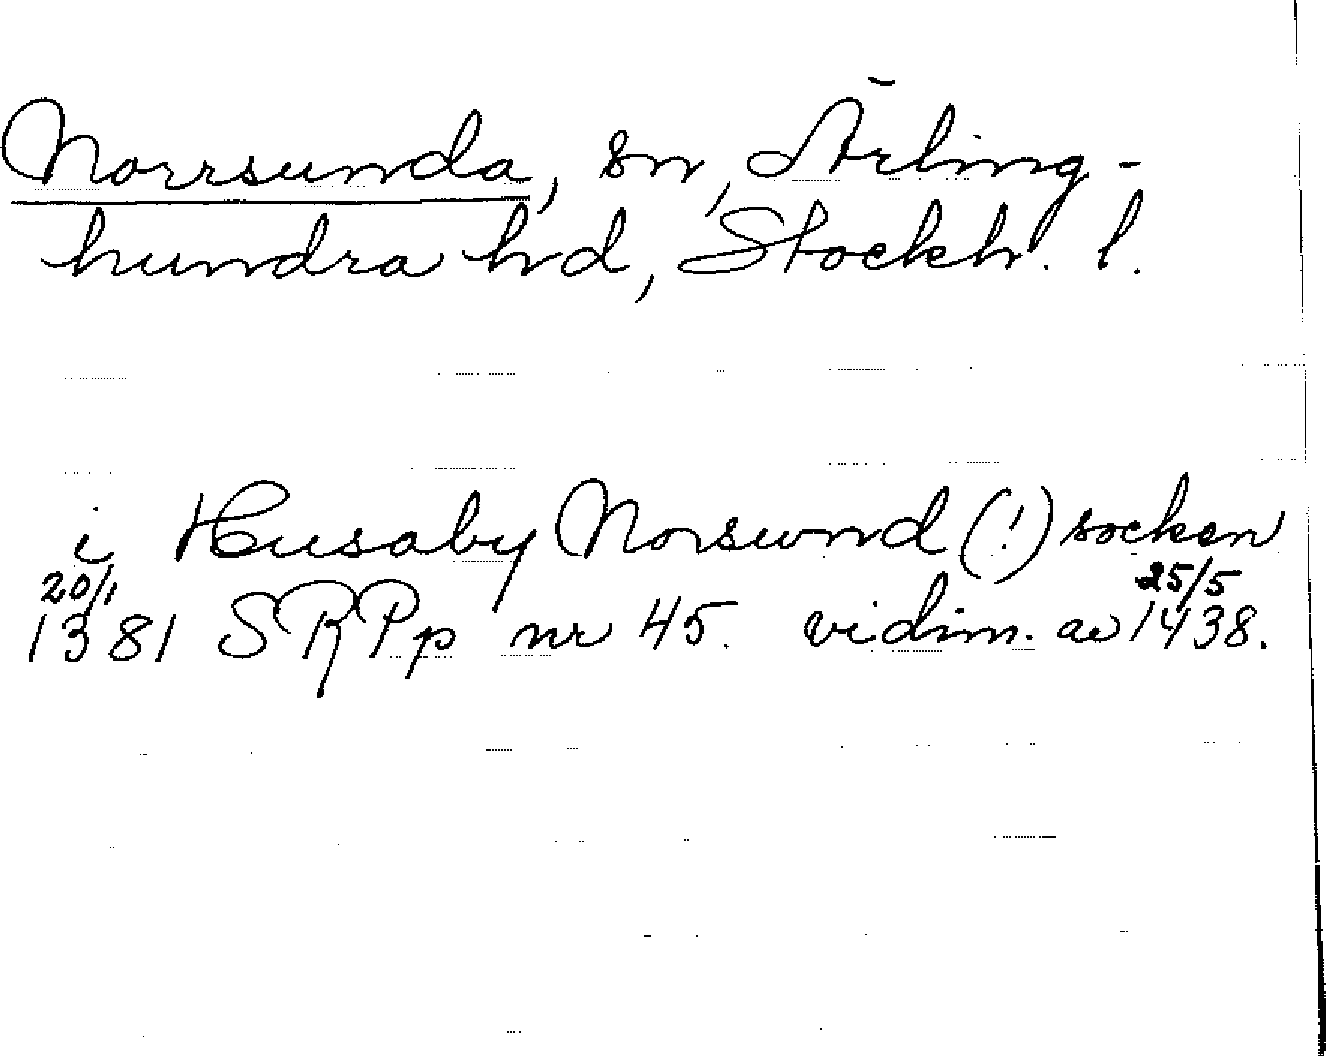 Norrsunda, sn, Ärling-
hundra hd, Stockh. l.
i Husaby Norsund (!) socken
20/1 25/5
1381 SRPp nr 45. vidim. av 1438.